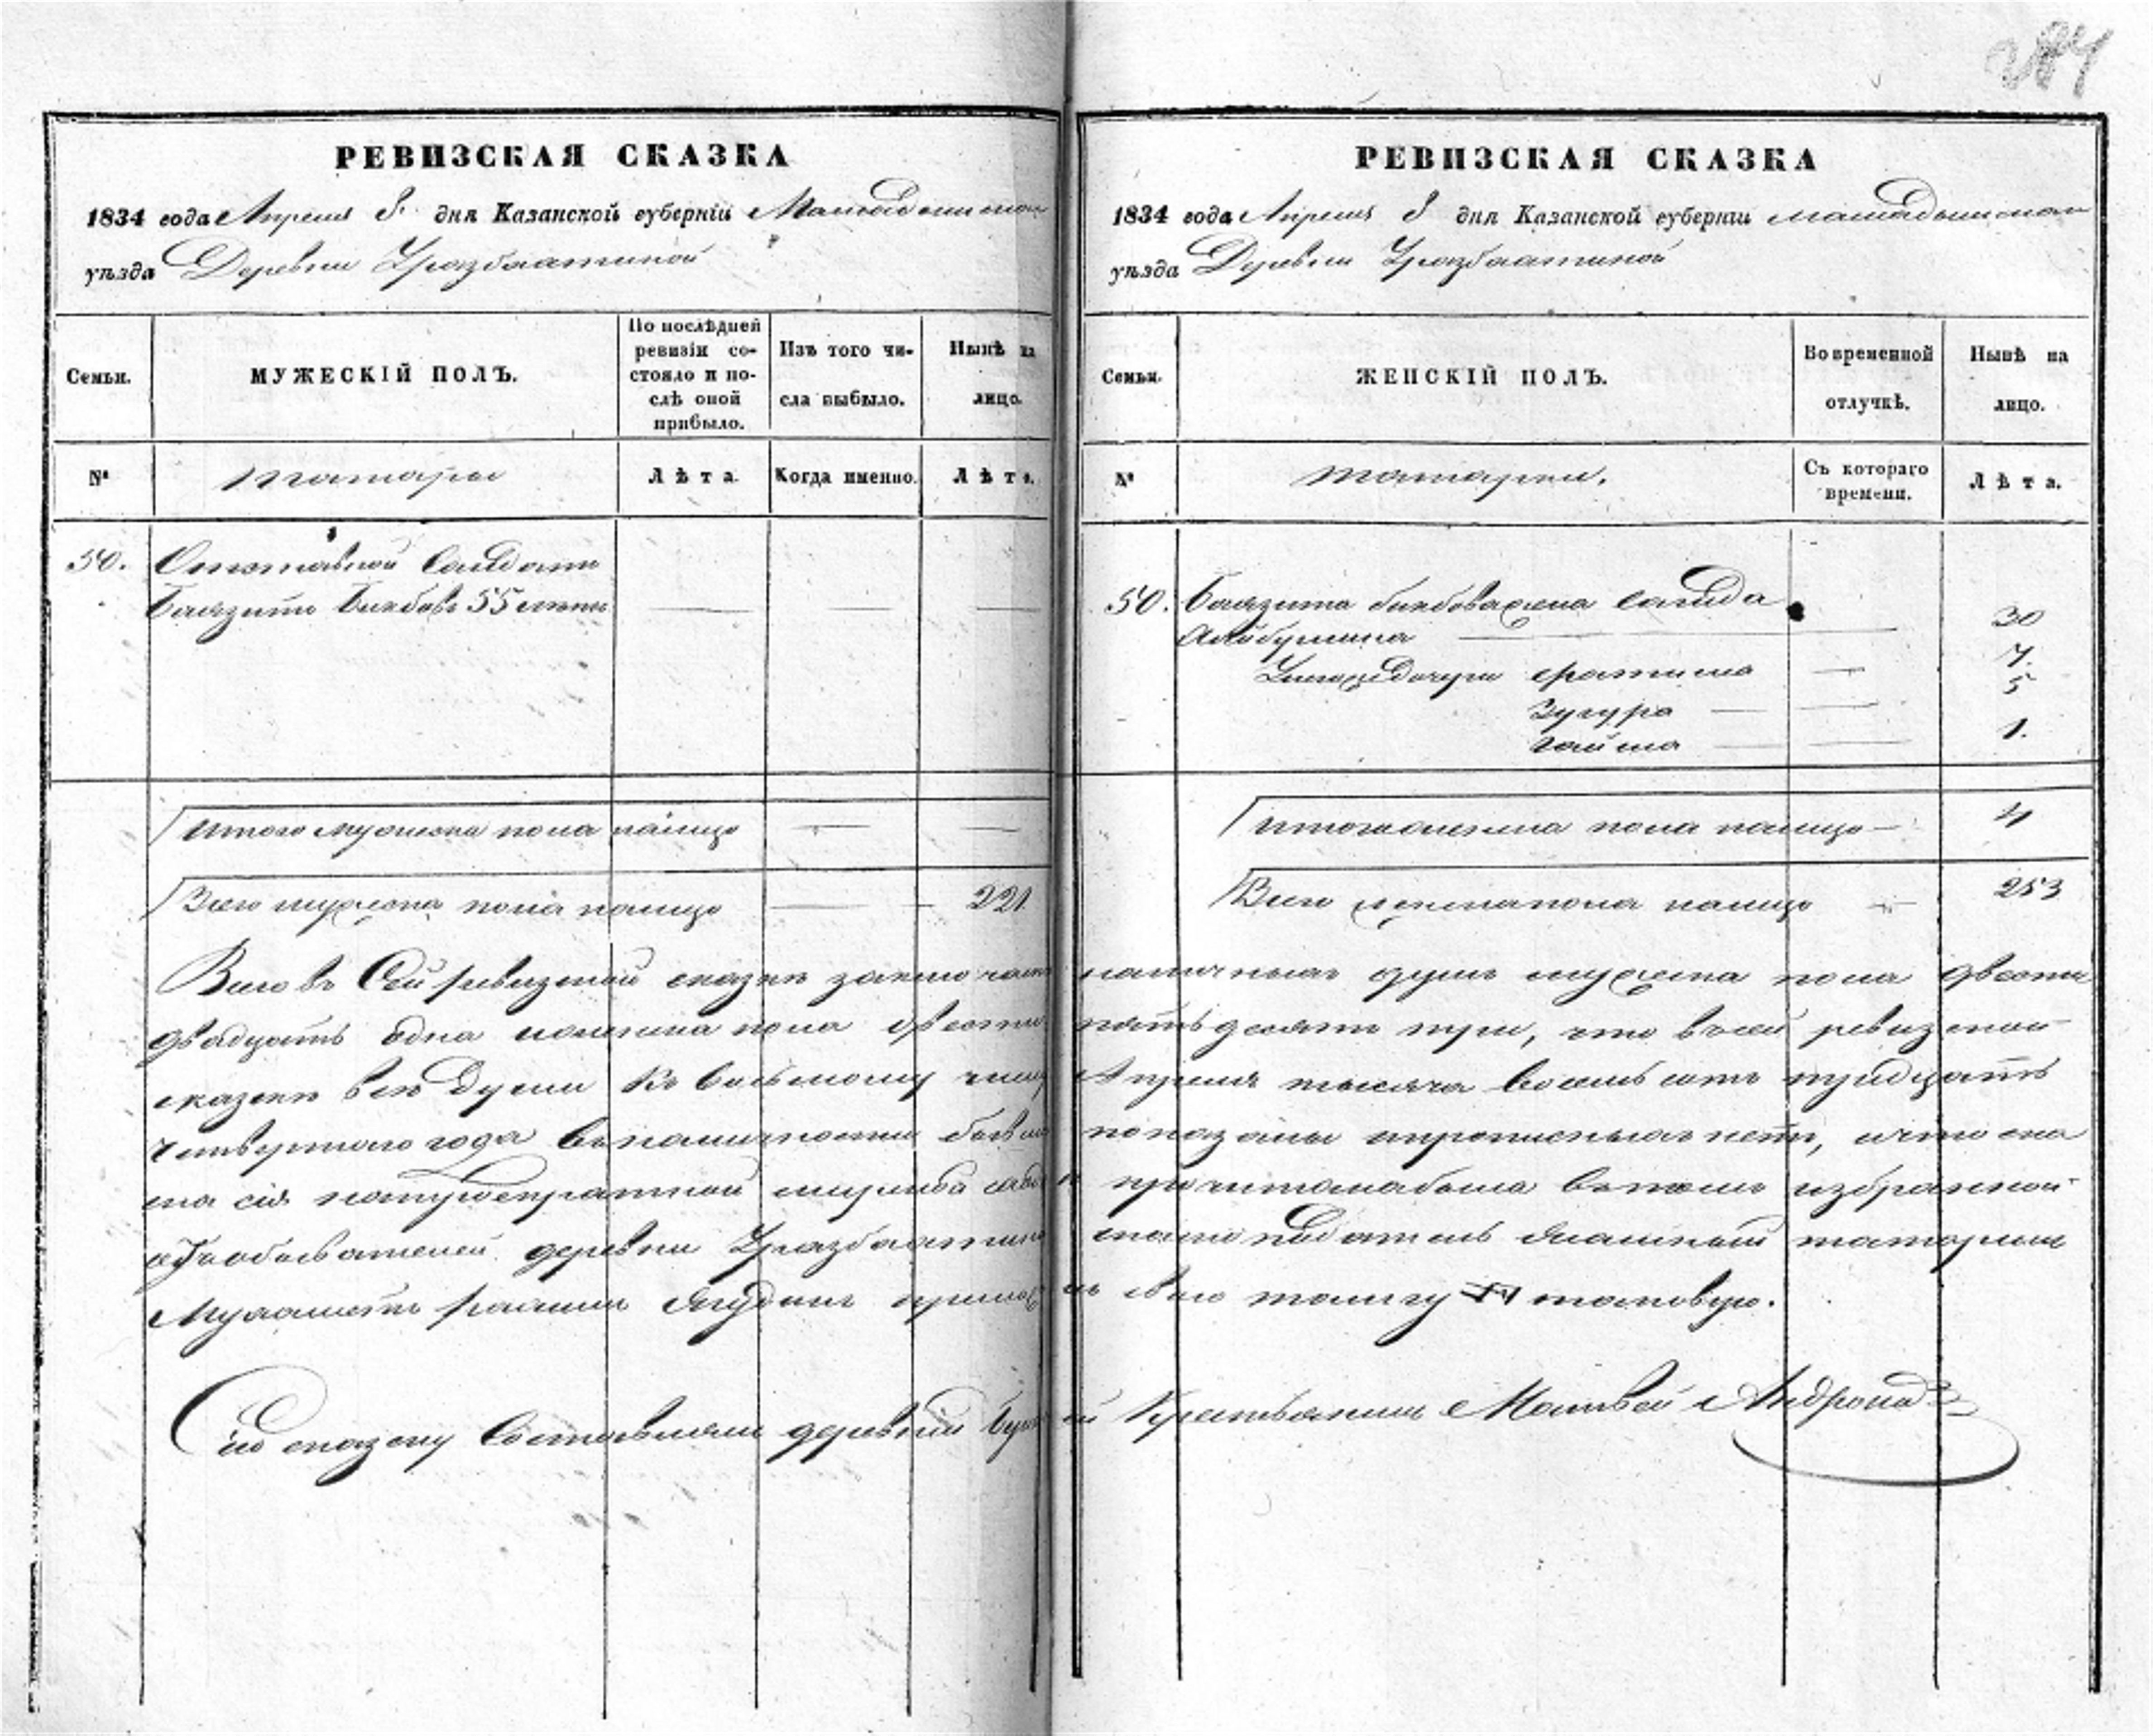 284
РЕВИЗСКАЯ СКАЗКА
1834 года Апреля 8. дня Казанской губернiи Мамадышскаго
уѣзда Деревни Уразбахтиной
Семьи.
МУЖЕСКIЙ ПОЛЪ.
По послѣдней
ревизiи со-
стояло и по-
слѣ оной
прибыло.
Изъ того чи-
сла выбыло.
Нынѣ на
лицо.
№
Татары
Лѣта.
Когда именно.
Лѣта.
50. Отставной Салдатъ
Баязитъ Бикбовъ 55 летъ — — —
Итого мужеска пола налицо — —
Всего мужеска пола налицо — — 221.
РЕВИЗСКАЯ СКАЗКА
1834 года Апреля 8 дня Казанской губернiи мамадышскаго
уѣзда Деревни Уразбахтиной
Семьи.
ЖЕНСКIЙ ПОЛЪ.
Во временной
отлучкѣ.
Нынѣ на
лицо.
№
татарки.
Съ котораго
времени.
Лѣта.
50. Баязита бикбова жена Сагида
— 30
Унего дочери Фатима — 7.
Зугура — — 5
— — 1.
итого женска пола налицо — 4
Всего женска пола налицо — 253
Всего въ Сей ревизской сказке заключается наличныхъ душъ мужеска пола двести
двадцать одна женска пола двести пятьдесятъ три, что в сей ревизской
сказке все Души къ восьмому числу Апреля тысяча восемьсотъ тридцать
четвертаго года в наличности бывшия показаны и прописныхъ нетъ, и что ска
зка сiя прочитана была в томъ избранной
обывателей деревни Уразбахтиной татаринъ
приложилъ свою тамгу таковую.
Сiю сказку Составлялъ деревни Крестьянинъ Матвей Андроновъ